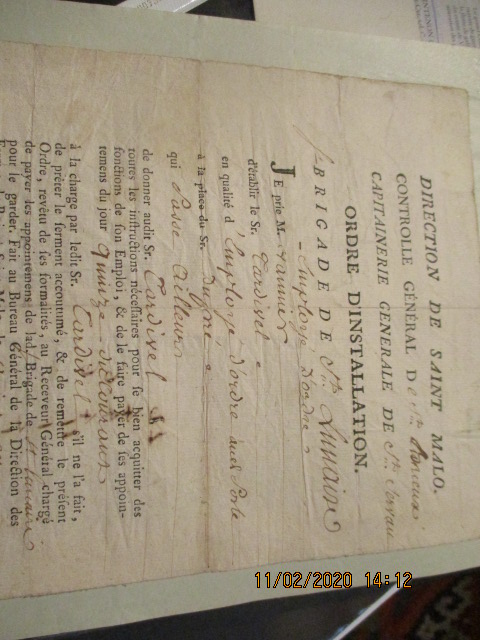 DIRECTION DE SAINT MALO.
CONTROLLE GÉNÉRAL De St. Servan
CAPITAINERIE GENERALE DE St. Servan
ORDRE D'INSTALLATION.
BRIGADE DE St. Lunaire
Employé D'ordre
JE prie M. Vannier
d'établir le Sr. Tardivel
en qualité d'Employé d'ordre
à la place du Sr. Dugué
qui Passe ailleurs
de donner audit Sr. Tardivel
toutes les instructions nécessaires pour se bien acquitter des
fonctions de son Emploi, & de le faire payer de ses appoin-
temens du jour quinze du courant
à la charge par ledit Sr. Tardivel s'il ne l'a fait,
de prêter le serment accoutumé, & de remettre le présent
Ordre, revêtu de ses formalités au Receveur Général chargé
de payer les appointemens de lad. Brigade de St Lunaire
pour le garder. Fait au Bureau Général de la Direction des
11/02/2020 14:12